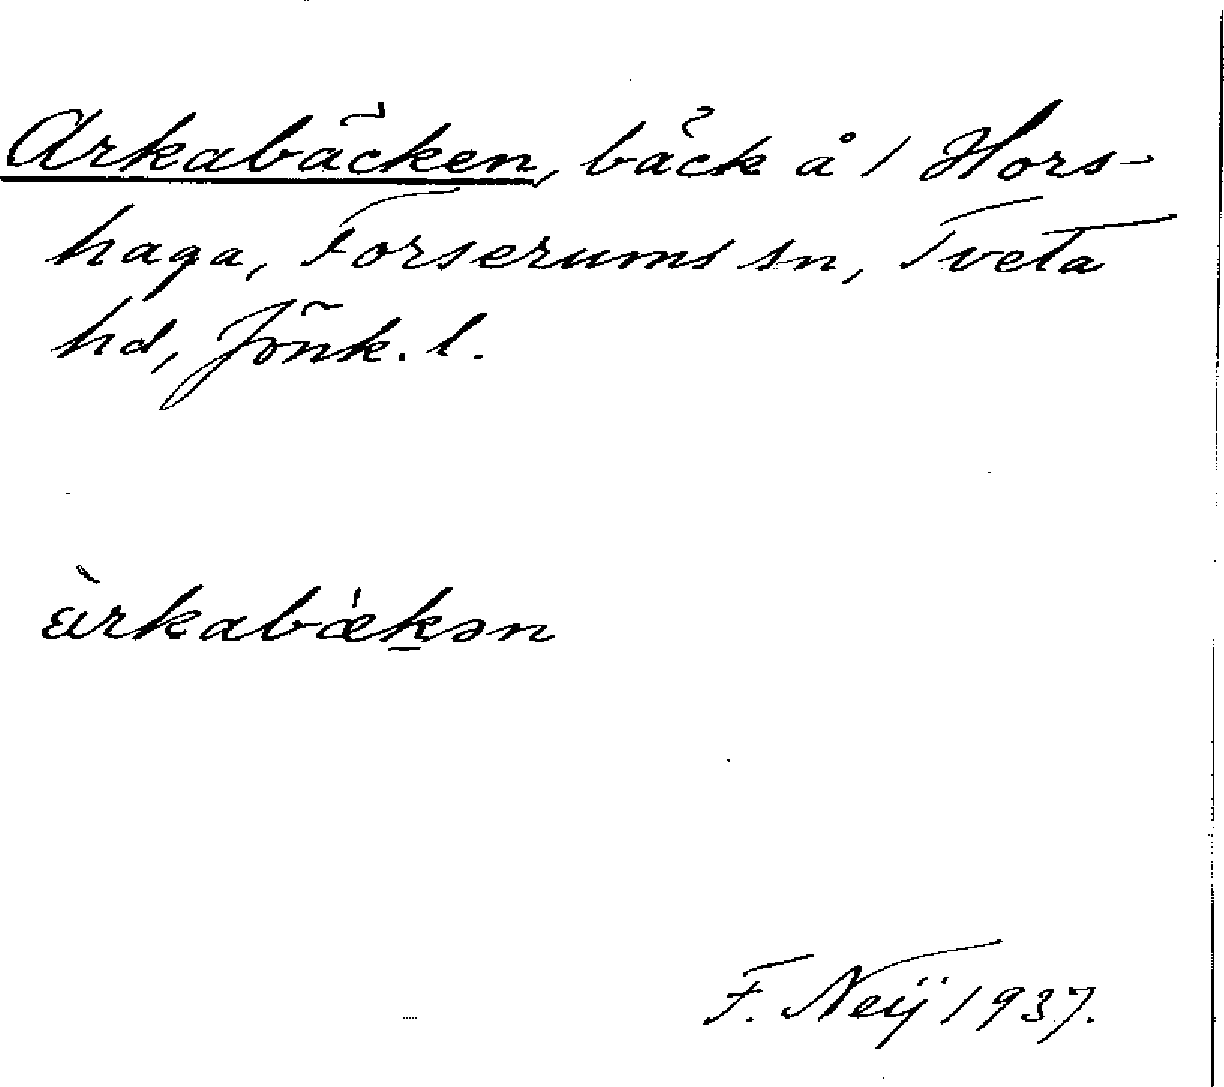 Arkabäcken, bäck å 1 Hors-
haga, Forserums sn, Tveta
hd, Jönk. l.
àrkabækən
F. Neij 1937.